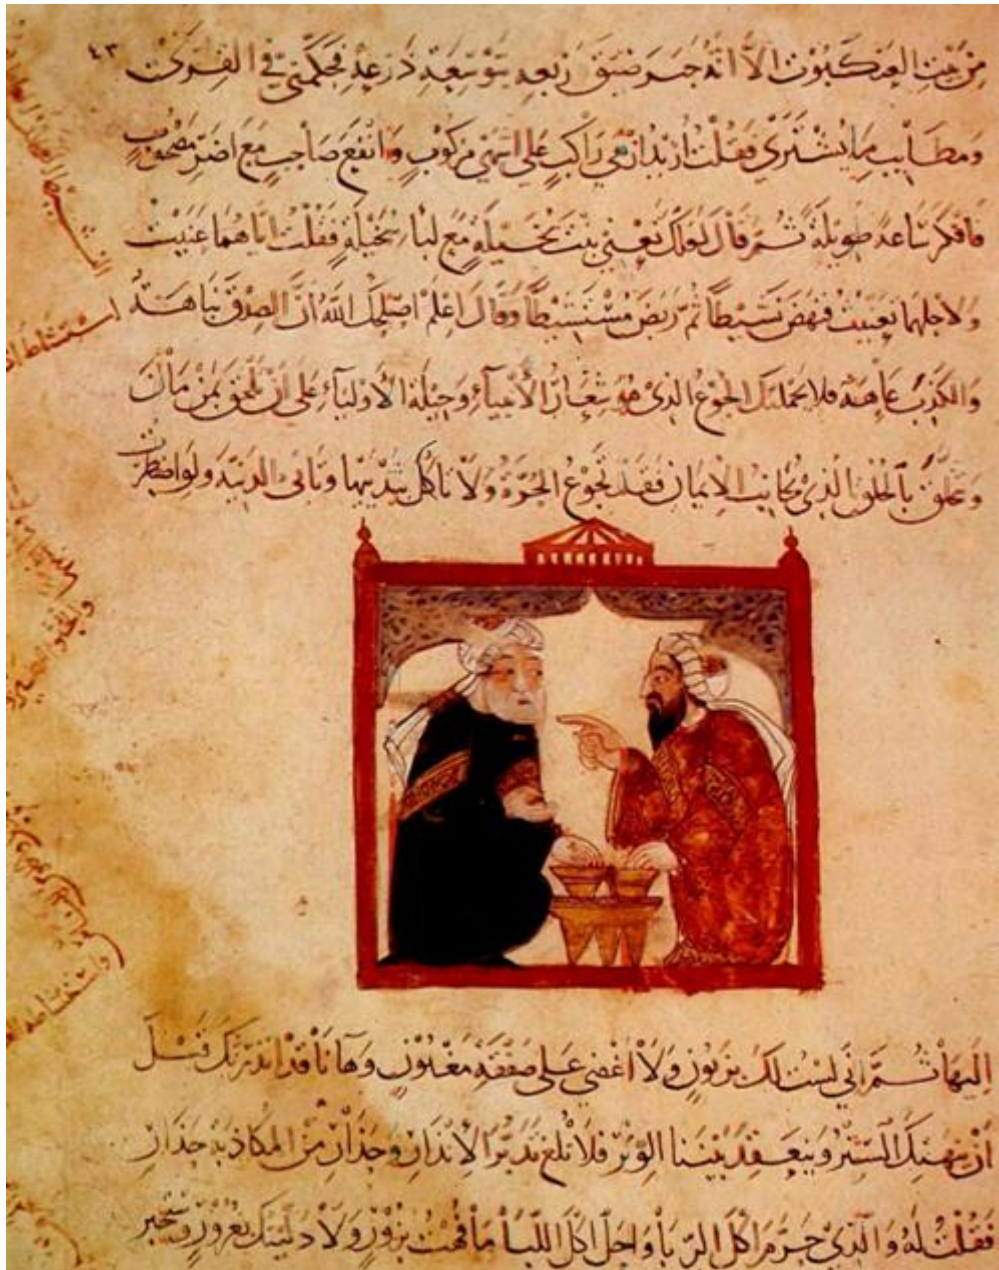 ٤٣
من بيت العنكبوت الا انه جبر ضيق ربعه بتوسعة ذرعه فحكمني في القرى
ومطايب ما يشترى فقلت اريد ازهى راكب على اشهى مركوب وانفع صاحب مع اضر مصحوب
فافكر ساعة طويلة ثم قال لعلك تعني بنت نخيلة مع لباء سخيلة فقلت اياهما عنيت
ولاجلهما تعنيت فنهض نشيطا ثم ربض مستشيطا وقال اعلم اصلحك الله ان الصدق نباهة
والكذب عاهة فلا يحملنك الجوع الذي هو شعار الأنبياء وحيلة الأولياء على ان تلحق بمن مان
وتخلق بالخلق الذي يجانب الإيمان فقد تجوع الحرة ولا تاكل بثدييها وتابى الدنية ولو اضطرت
اليها ثم اني لست لك بزبون ولا اغضي على صفقة مغبون وها انا قد انذرتك قبل
ان ينهتك الستر وينعقد بيننا الوتر فلا تلغ تدبر الانذار وحذار من المكاذبة حذار
فقلت له والذي حرم اكل الربا واحل اكل اللبا ما فهت بزور ولا دليتك بغرور وستخبر